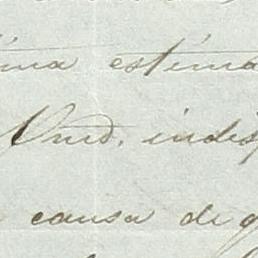 ima estima
Vmd. indis
causa de g